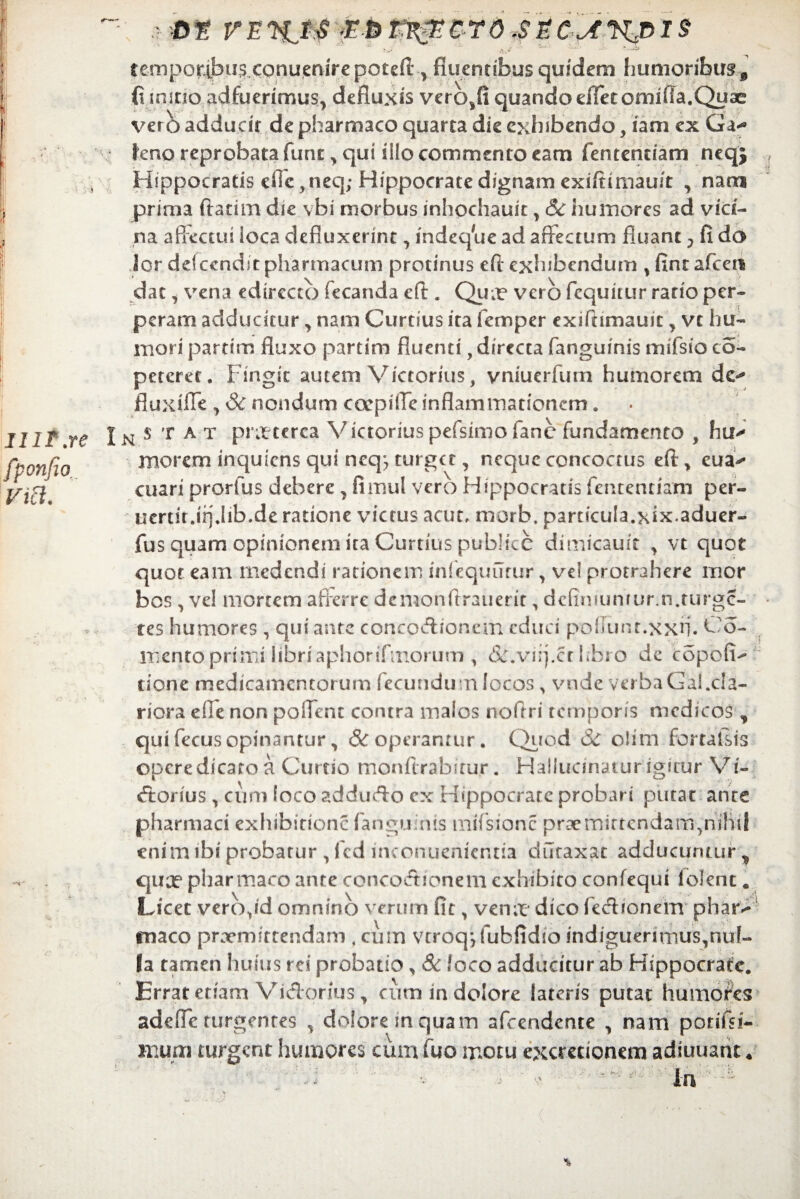 DE VENIS EDIRECTO SECANDIS
temporibus conuenire poteſt, fluentibus quidem humoribus,
ſi initio adfuerimus, defluxis verò, ſi quando eſſet omiſſa. Quæ
verò adducit de pharmaco quarta die exhibendo, iam ex Ga-
leno reprobata ſunt, qui illo commento eam ſententiam neq;
Hippocratis eſſe, neq; Hippocrate dignam exiſtimauit, nam
prima ſtatim die vbi morbus inhochauit, & humores ad vici-
na affectui loca defluxerint, indeque ad affectum fluant, ſi do
lor deſcendit pharmacum protinus eſt exhibendum, ſint aſcen
dat, vena edirectò ſecanda eſt. Quæ verò ſequitur ratio per-
peram adducitur, nam Curtius ita ſemper exiſtimauit, vt hu-
mori partim fluxo partim fluenti, directa ſanguinis miſsio cō-
peteret. Fingit autem Victorius, vniuerſum humorem de-
fluxiſſe, & nondum cœpiſſe inflammationem.
IIII.re
ſponſio
Vict.
INSTAT præterea Victorius peſsimo ſanè fundamento, hu-
morem inquiens qui neq; turget, neque concoctus eſt, eua-
cuari prorſus debere, ſimul verò Hippocratis ſententiam per-
uertit.iij.lib.de ratione victus acut. morb. particula.xix.aduer-
ſus quam opinionem ita Curtius publicè dimicauit, vt quot
quot eam medendi rationem inſequūtur, vel protrahere mor
bos, vel mortem afferre demonſtrauerit, definiuntur.n.turgē-
tes humores, qui ante concoctionem educi poſſunt.xxij. Cō-
mento primi libri aphoriſmorum, &.viij.et libro de cōpoſi-
tione medicamentorum ſecundum locos, vnde verba Gal.cla-
riora eſſe non poſſent contra malos noſtri temporis medicos,
qui ſecus opinantur, & operantur. Quod & olim fortaſsis
opere dicato à Curtio monſtrabitur. Hallucinatur igitur Vi-
ctorius, cùm loco adducto ex Hippocrate probari putat ante
pharmaci exhibitionē ſanguinis miſsionē præmittendam, nihil
enim ibi probatur, ſed inconuenientia dūtaxat adducuntur,
quæ pharmaco ante concoctionem exhibito conſequi ſolent.
Licet verò, id omninò verum ſit, venæ dico ſectionem phar-
maco præmittendam, cùm vtroq; ſubſidio indiguerimus, nul-
la tamen huius rei probatio, & loco adducitur ab Hippocrate.
Errat etiam Victorius, cùm in dolore lateris putat humores
adeſſe turgentes, dolore inquam aſcendente, nam potiſsi-
mum turgent humores cùm ſuo motu excretionem adiuuant.
In